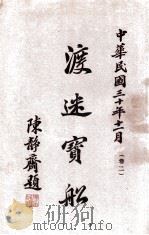 中華民國三十年十二月
(卷二)
渡迷寶船
陳靜齋題